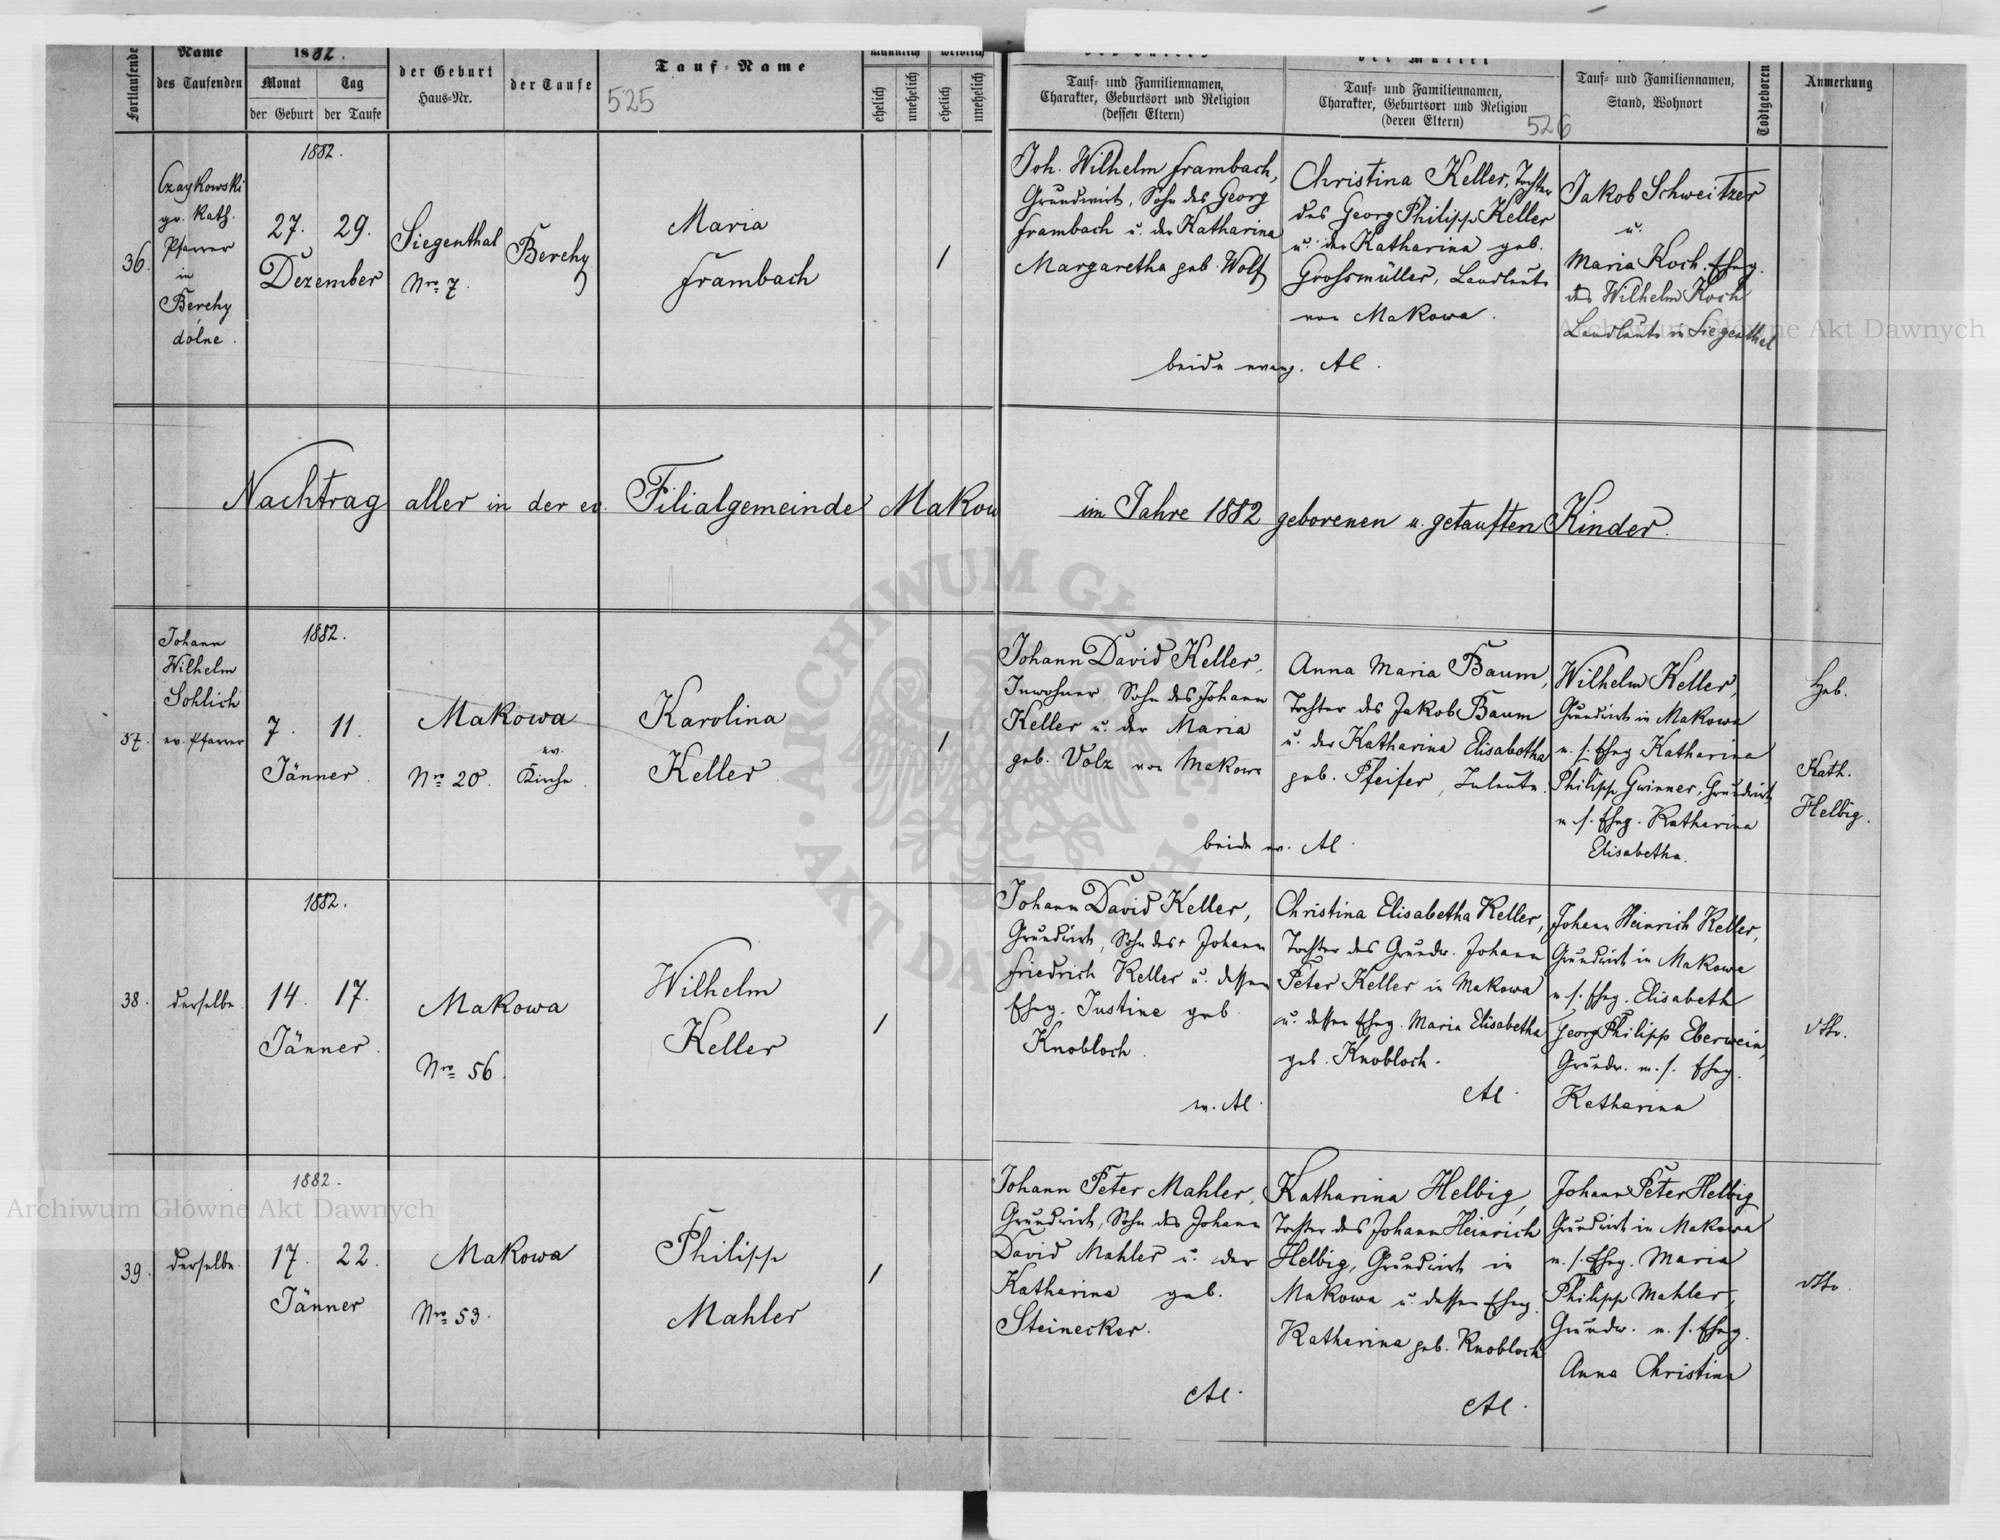 Fortlaufende
Name
des Taufenden
1882.
Monat
Tag
der Geburt
der Taufe
der Geburt
Haus-Nr.
der Taufe
525
Tauf-Name
männlich
weiblich
ehelich
unehelich
ehelich
unehelich
Tauf- und Familiennamen,
Charakter, Geburtsort und Religion
(dessen Eltern)
der Mutter
Tauf- und Familiennamen,
Charakter, Geburtsort und Religion
(deren Eltern)
526
Tauf- und Familiennamen,
Stand, Wohnort
Todtgeboren
Anmerkung
36.
Czaykowski
gr. Kath.
Pfarrer
in
Berehy
dolne.
1882.
27. 29.
Dezember
Siegenthal
Nro 7.
Berehy
Maria
Frambach
1
Joh. Wilhelm Frambach,
Grundwirt, Sohn des Georg
Frambach u. der Katharina
Margaretha geb. Wolf
Christina Keller, Tochter
des Georg Philipp Keller
u. der Katharina geb.
Grossmüller, Landleute
von Makowa.
beide evang. AC.
Jakob Schweitzer
u.
Maria Koch. Eheg.
des Wilhelm Koch
Landleute in Siegenthal
Nachtrag aller in der ev. Filialgemeinde Makow
im Jahre 1882 geborenen u. getauften Kinder.
37.
Johann
Wilhelm
Sohlich
ev. Pfarrer
1882.
7. 11.
Jänner.
Makowa
Nro 20.
ev.
Kirche.
Karolina
Keller
1
Johann David Keller,
Inwohner Sohn des Johann
Keller u. der Maria
geb. Volz von Makowa
Anna Maria Baum,
Tochter des Jakob Baum
u. der Katharina Elisabetha
geb. Pfeifer,
beide ev. AC.
Wilhelm Keller,
Grundwirt in Makowa
u. s. Eheg. Katharina
Philipp Gwinner, Grundwirt
u. s. Eheg. Katharina
Elisabetha.
Heb.
Kath.
Helbig.
38.
derselbe.
1882.
14. 17.
Jänner.
Makowa
Nro 56.
Wilhelm
Keller
1
Johann David Keller,
Grundwirt, Sohn des + Johann
Friedrich Keller u. dessen
Eheg. Justine geb.
Knobloch.
ev. AC.
Christina Elisabetha Keller,
Tochter des Grundw. Johann
Peter Keller in Makowa
u. dessen Eheg. Maria Elisabetha
geb. Knobloch.
AC.
Johann Heinrich Keller,
Grundwirt in Makowa
u. s. Eheg. Elisabeth
Georg Philipp Eberwein,
Grundw. u. s. Eheg.
Katharina
dtto.
39.
derselbe.
1882.
17. 22.
Jänner
Makowa
Nro 53.
Philipp
Mahler
1
Johann Peter Mahler,
Grundwirt, Sohn des Johann
David Mahler u. der
Katharina geb.
Steinecker.
AC.
Katharina Helbig,
Tochter des Johann Heinrich
Helbig, Grundwirt in
Makowa u. dessen Eheg.
Katharina geb. Knobloch
AC.
Johann Peter Helbig
Grundwirt in Makowa
u. s. Eheg. Maria
Philipp Mahler,
Grundw. u. s. Eheg.
Anna Christina
dtto.
Archiwum Główne Akt Dawnych
Archiwum Główne Akt Dawnych